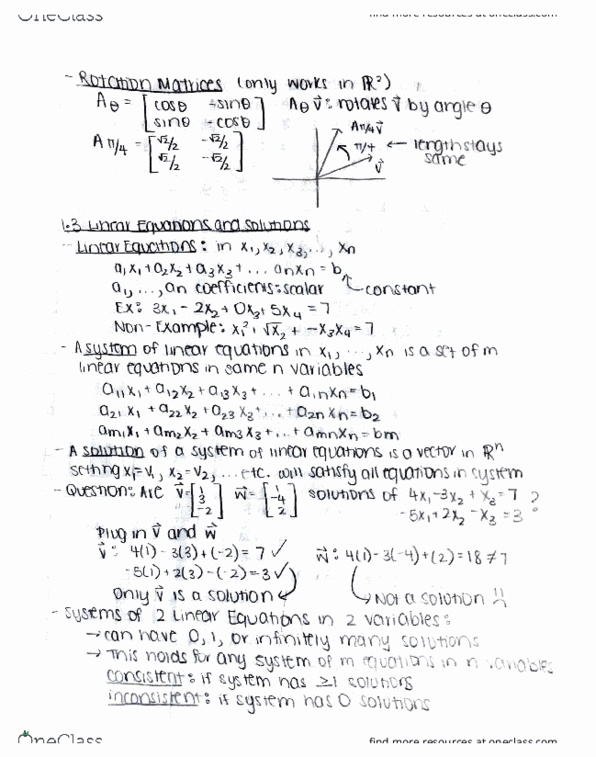 OneClass find more resources at oneclass.com
- Rotation Matrices (only works in ℝ²)
Aθ = [cosθ -sinθ] Aθ v⃗: rotates v⃗ by angle θ
[sinθ -cosθ]
Aπ/4 = [√2/2 -√2/2] Aπ/4 v⃗
[√2/2 -√2/2] π/4 ← length stays
v⃗ same
1.3 Linear Equations and solutions
- Linear Equations: in x₁, x₂, x₃, ..., xn
a₁x₁+a₂x₂+a₃x₃+... anxn = b
a₁, ..., an coefficients: scalar constant
Ex: 3x₁ - 2x₂ + 0x₃ + 5x₄ = 7
Non-Example: x₁² + √x₂ + -x₃x₄ = 7
- A system of linear equations in x₁, ..., xn is a set of m
linear equations in same n variables
a₁₁x₁ + a₁₂x₂ + a₁₃x₃ + ... + a₁nxn = b₁
a₂₁x₁ + a₂₂x₂ + a₂₃x₃ + ... + a₂nxn = b₂
am₁x₁ + am₂x₂ + am₃x₃ + ... + amnxn = bm
- A solution of a system of linear equations is a vector in ℝⁿ
setting x₁=v₁, x₂=v₂, ... etc. will satisfy all equations in system
- Question: Are v⃗ = [1 3 -2] w⃗ = [1 -4 2] solutions of 4x₁-3x₂+x₃=7 ?
-5x₁+2x₂-x₃=3
Plug in v⃗ and w⃗
v⃗: 4(1) - 3(3) + (-2) = 7 ✓ w⃗: 4(1) - 3(-4) + (2) = 18 ≠ 7
-5(1) + 2(3) - (-2) = 3 ✓
Only v⃗ is a solution ↲ ↳ Not a solution !!
- Systems of 2 Linear Equations in 2 variables:
→ can have 0, 1, or infinitely many solutions
→ This holds for any system of m equations in n variables
consistent: if system has ≥1 solutions
inconsistent: if system has 0 solutions
OneClass find more resources at oneclass.com